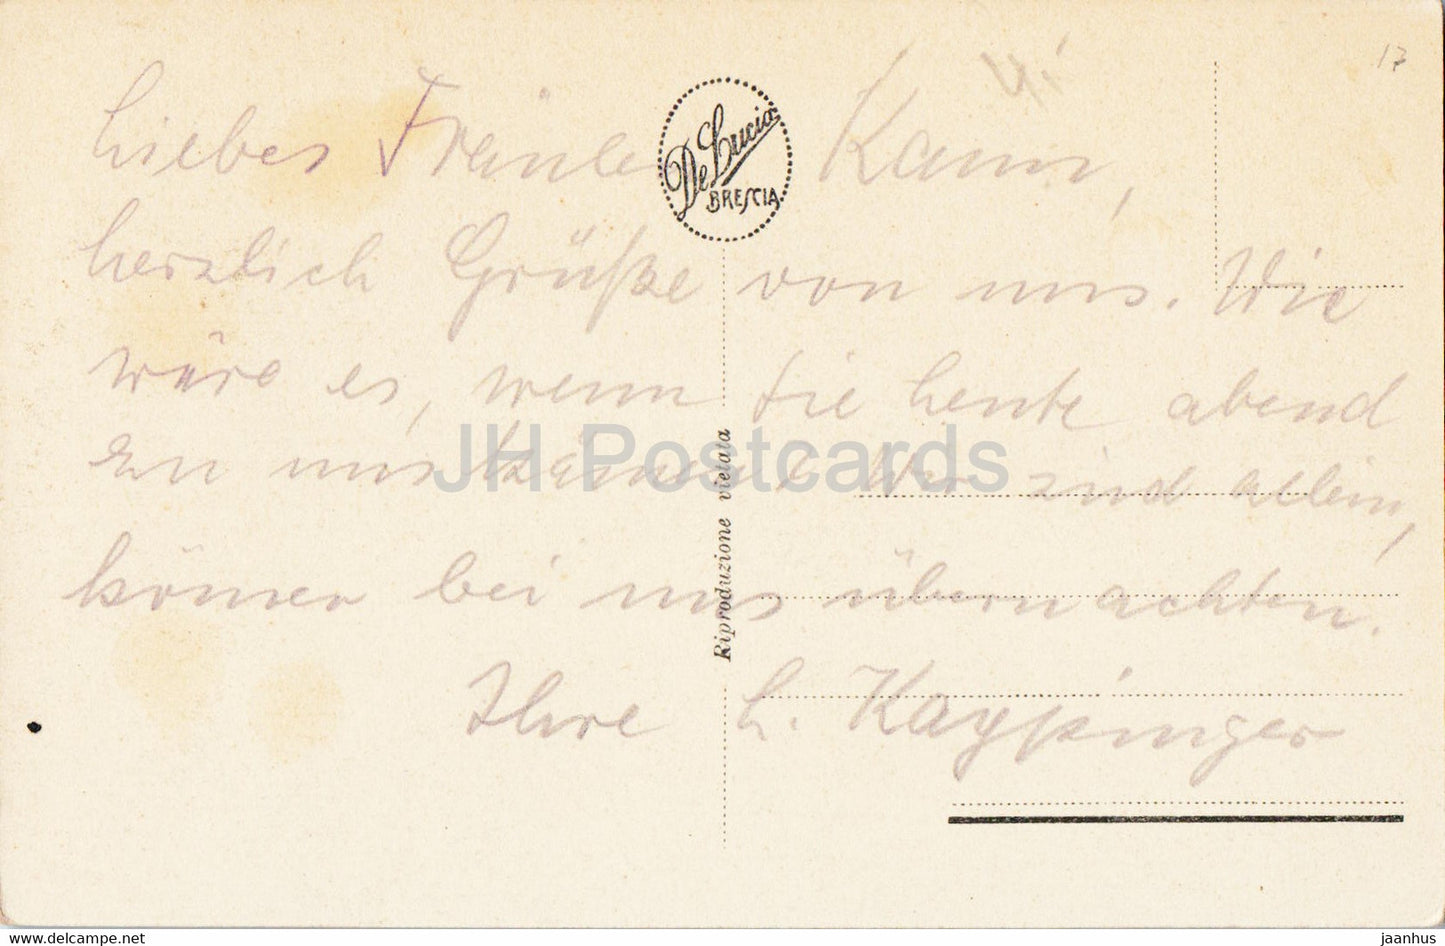 17
Liebes Fräulein Kann,
De Lucia
BRESCIA
herzlich Grüße von uns. Wie
wäre es, wenn Sie heute abend
zu uns kämen! Wir sind allein,
können bei uns übernachten.
Ihre L. Kaypinger
Riproduzione vietata
JH Postcards
www.delcampe.net
jaanhus